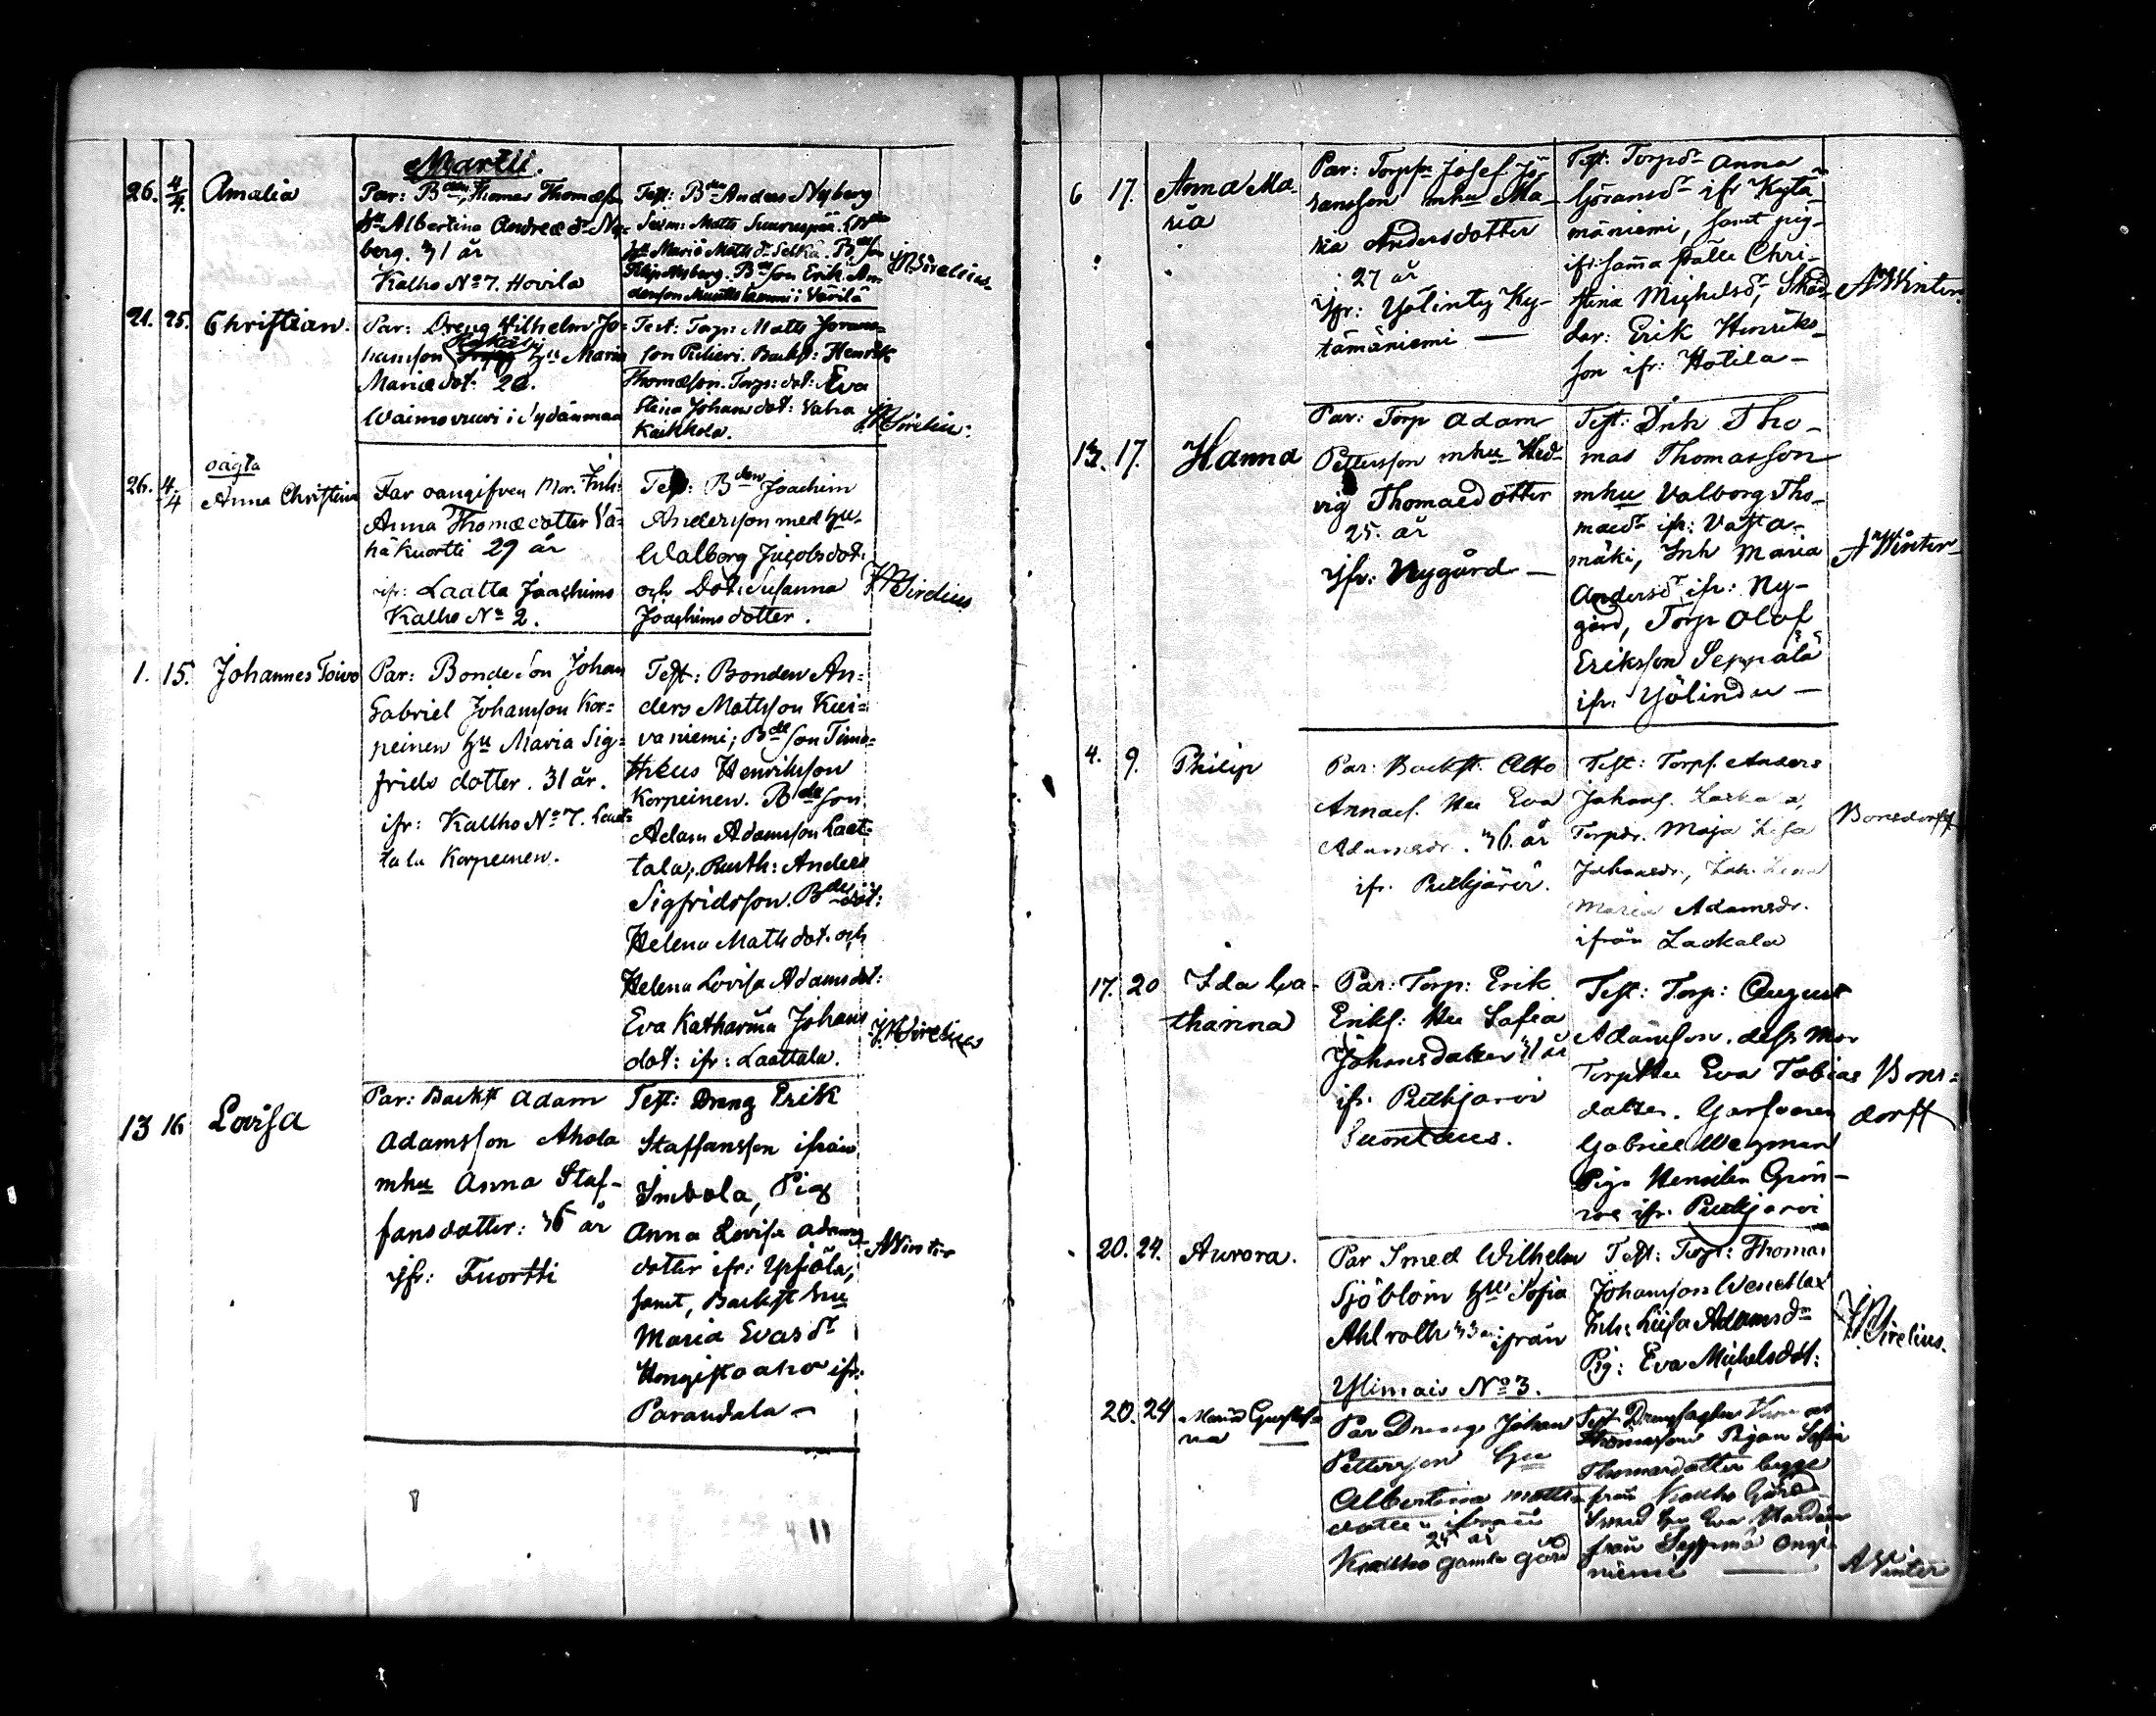 Martii.
26. 4/4. Amalia
Par: Bden Thomas Thomæson
hu Albertina Andreæ dr Ny-
berg. 31 år
Kalho No 7. Hovila
Test: Bden Anders Nyberg
hu Maria Matts dr Selkä. Bdeson
Filip Nyberg. Bdeson Erik An-
dersson
JWSirelius.
21. 25. Christian.
Par: Dreng Wilhelm Jo-
hansson hu Maria
Mariædot: 20.
Waimovuori i Sydänmaa
Test: Torp: Matts Johans-
son Backst: Henrik
Thomæson. Torp: dot: Eva
Stina Johansdot: Vaha
Kaikkola.
JWSirelius.
oägta
26. 4/4 Anna Christina
Far oangifven Mor. Inh:
Anna Thomæ dotter Vä-
häkuortti 29 år
ifr: Laatta Joachims
Kalho No 2.
Test: Bden Joachim
Andersson med hu.
Walborg Jacobsdot:
och Dot: Susanna
Joachims dotter.
JWSirelius
1. 15. Johannes Toivo
Par: Bondeson Johan
Gabriel Johansson Kor-
peinen hu Maria Sig-
frids dotter. 31 år.
ifr: Kallho No 7. Laat-
tala Korpeinen.
Test: Bonden An-
ders Mattsson Kui-
vaniemi; Bdeson Timo-
theus Henriksson
Korpeinen. Bdeson
Adam Adamsson Laat-
tala; Rusth: Anders
Sigfridsson. Bdedot:
Helena Mattsdot. och
Helena Lovisa Adamsdot:
Eva Katharina Johans
dot: ifr: Laattala.
JWSirelius
13 16 Lovisa
Par: Backst Adam
Adamsson Ahola
mhu Anna Staf-
fansdotter: 36 år
ifr: Tuortti
Test: Dreng Erik
Staffansson ifrån
Imbola, Pig
Anna Lovisa Adams
dotter ifr: Ypjölä,
samt, Backst hu
Maria Evasdr
Hongistoaho ifr:
Parandala —
AWinter
6 17. Anna Ma-
ria
Par: Torpfn Josef Jö-
ransson mhu Ma-
ria Andersdotter
27 år
ifr: Yölinty Ky-
tämäniemi —
Test: Torpdr Anna
Göransdr ifr Kytä-
mäniemi, samt pig-
ifr: samma ställe Chri-
stina Michelsdr,
Erik Henriks-
son ifr: Hotila —
AWinter
13. 17. Hanna
Par: Torp Adam
Pettersson mhu Hed-
vig Thomaedotter
25. år
ifr: Nygård —
Test: Inh Tho-
mas Thomasson
mhu Valborg Tho-
maedr ifr: Vasta-
mäki, Inh Maria
Andersdr, ifr: Ny-
gård, Torp Olof
Eriksson Seppälä
ifr: Yölindu —
AWinter
4. 9. Philip
Par: Backst: Otto
Annaes. Hu Eva
Adamsdr. 36 år
ifr. Pukjärvi.
Test: Torpf. Anders
Johans.
Torpdr. Maja Lisa
Johansdr., Inh. Lena
Maria Adamsdr.
ifrån Laokala
Bonsdorff
17. 20 Ida Ca-
tharina
Par: Torp: Erik
Eriks: Hu Sofia
Johansdotter 31 år
ifr. Pukjärvi
Suontaus.
Test: Torp: August
Adamsson, dess Mor
TorpHu Eva Tobias
dotter. Garfvaren
Gabriel Wegman
Piga
ifr. Pukjärvi
Bons-
dorff
20. 24. Aurora.
Par Smed Wilhelm
Sjöblom hu Sofia
Ahlroth 33 år ifrån
Ylimais No 3.
Test: Torp: Thomas
Johansson
Inh: Lisa Adamsdr
Pig: Eva Michelsdot:
JWSirelius.
20. 24 Maria Gustaf-
va
Par Dreng Johan
Pettersson hu
Albertina Matts-
dotter ifrån
25 år
Kallho gamla gård
Test
Thomasson Pigan Sofia
Thomasdotter begge
från Kallho Gård
Smed hu Eva
från Seppämä
niemi —
AWinter